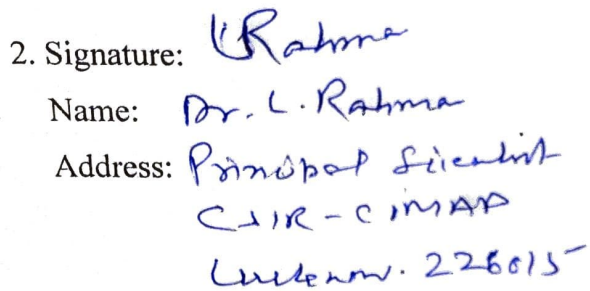 2. Signature: LRahma
Name: Dr. L. Rahma
Address: Principal Scientist
CSIR-CIMAP
Lucknow. 226015